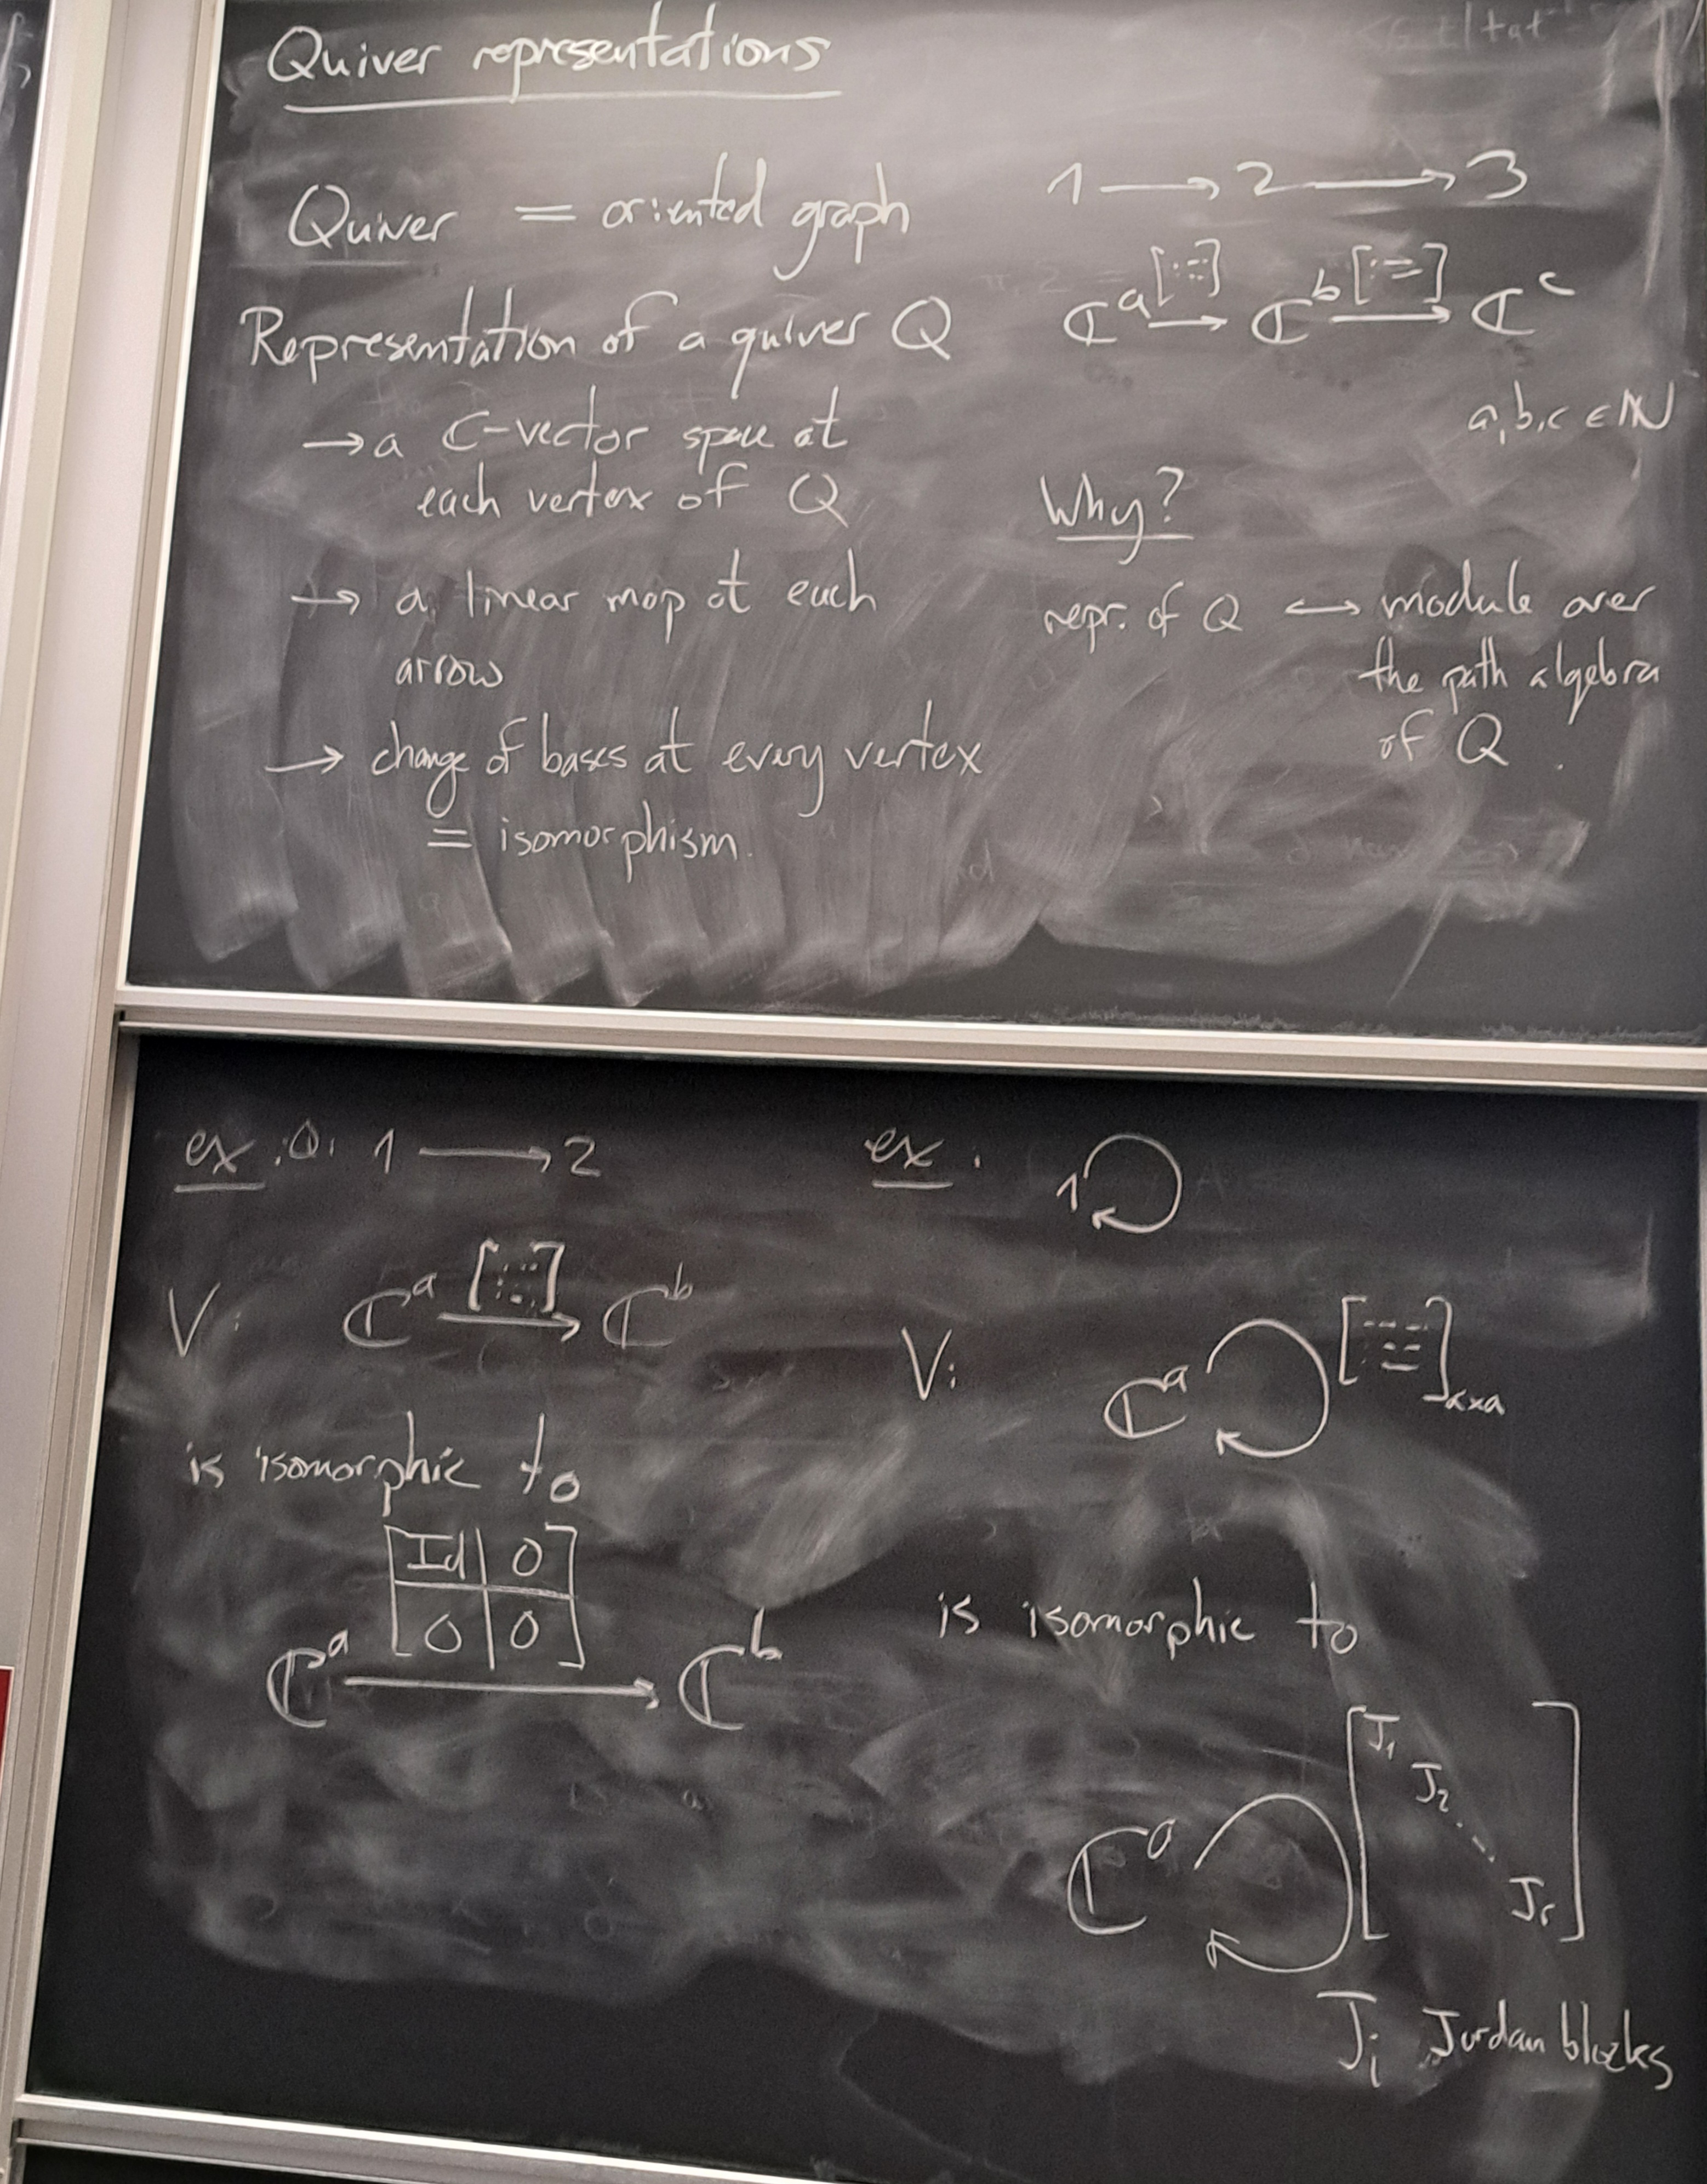 Quiver representations
Quiver = oriented graph
Representation of a quiver Q
→ a ℂ-vector space at
each vertex of Q
→ a linear map at each
arrow
→ change of bases at every vertex
= isomorphism.
1 → 2 → 3
ℂ^a → ℂ^b → ℂ^c
a,b,c ∈ ℕ
Why?
repr. of Q ↔ module over
the path algebra
of Q.
ex. Q: 1 → 2
V: ℂ^a [⋱] → ℂ^b
is isomorphic to
[Id | 0]
[0 | 0]
ℂ^a → ℂ^b
ex. 1
V: ℂ^a [ ]_{a×a}
is isomorphic to
J₁
J₂
⋱
ℂ^a
J_r
J_i Jordan blocks